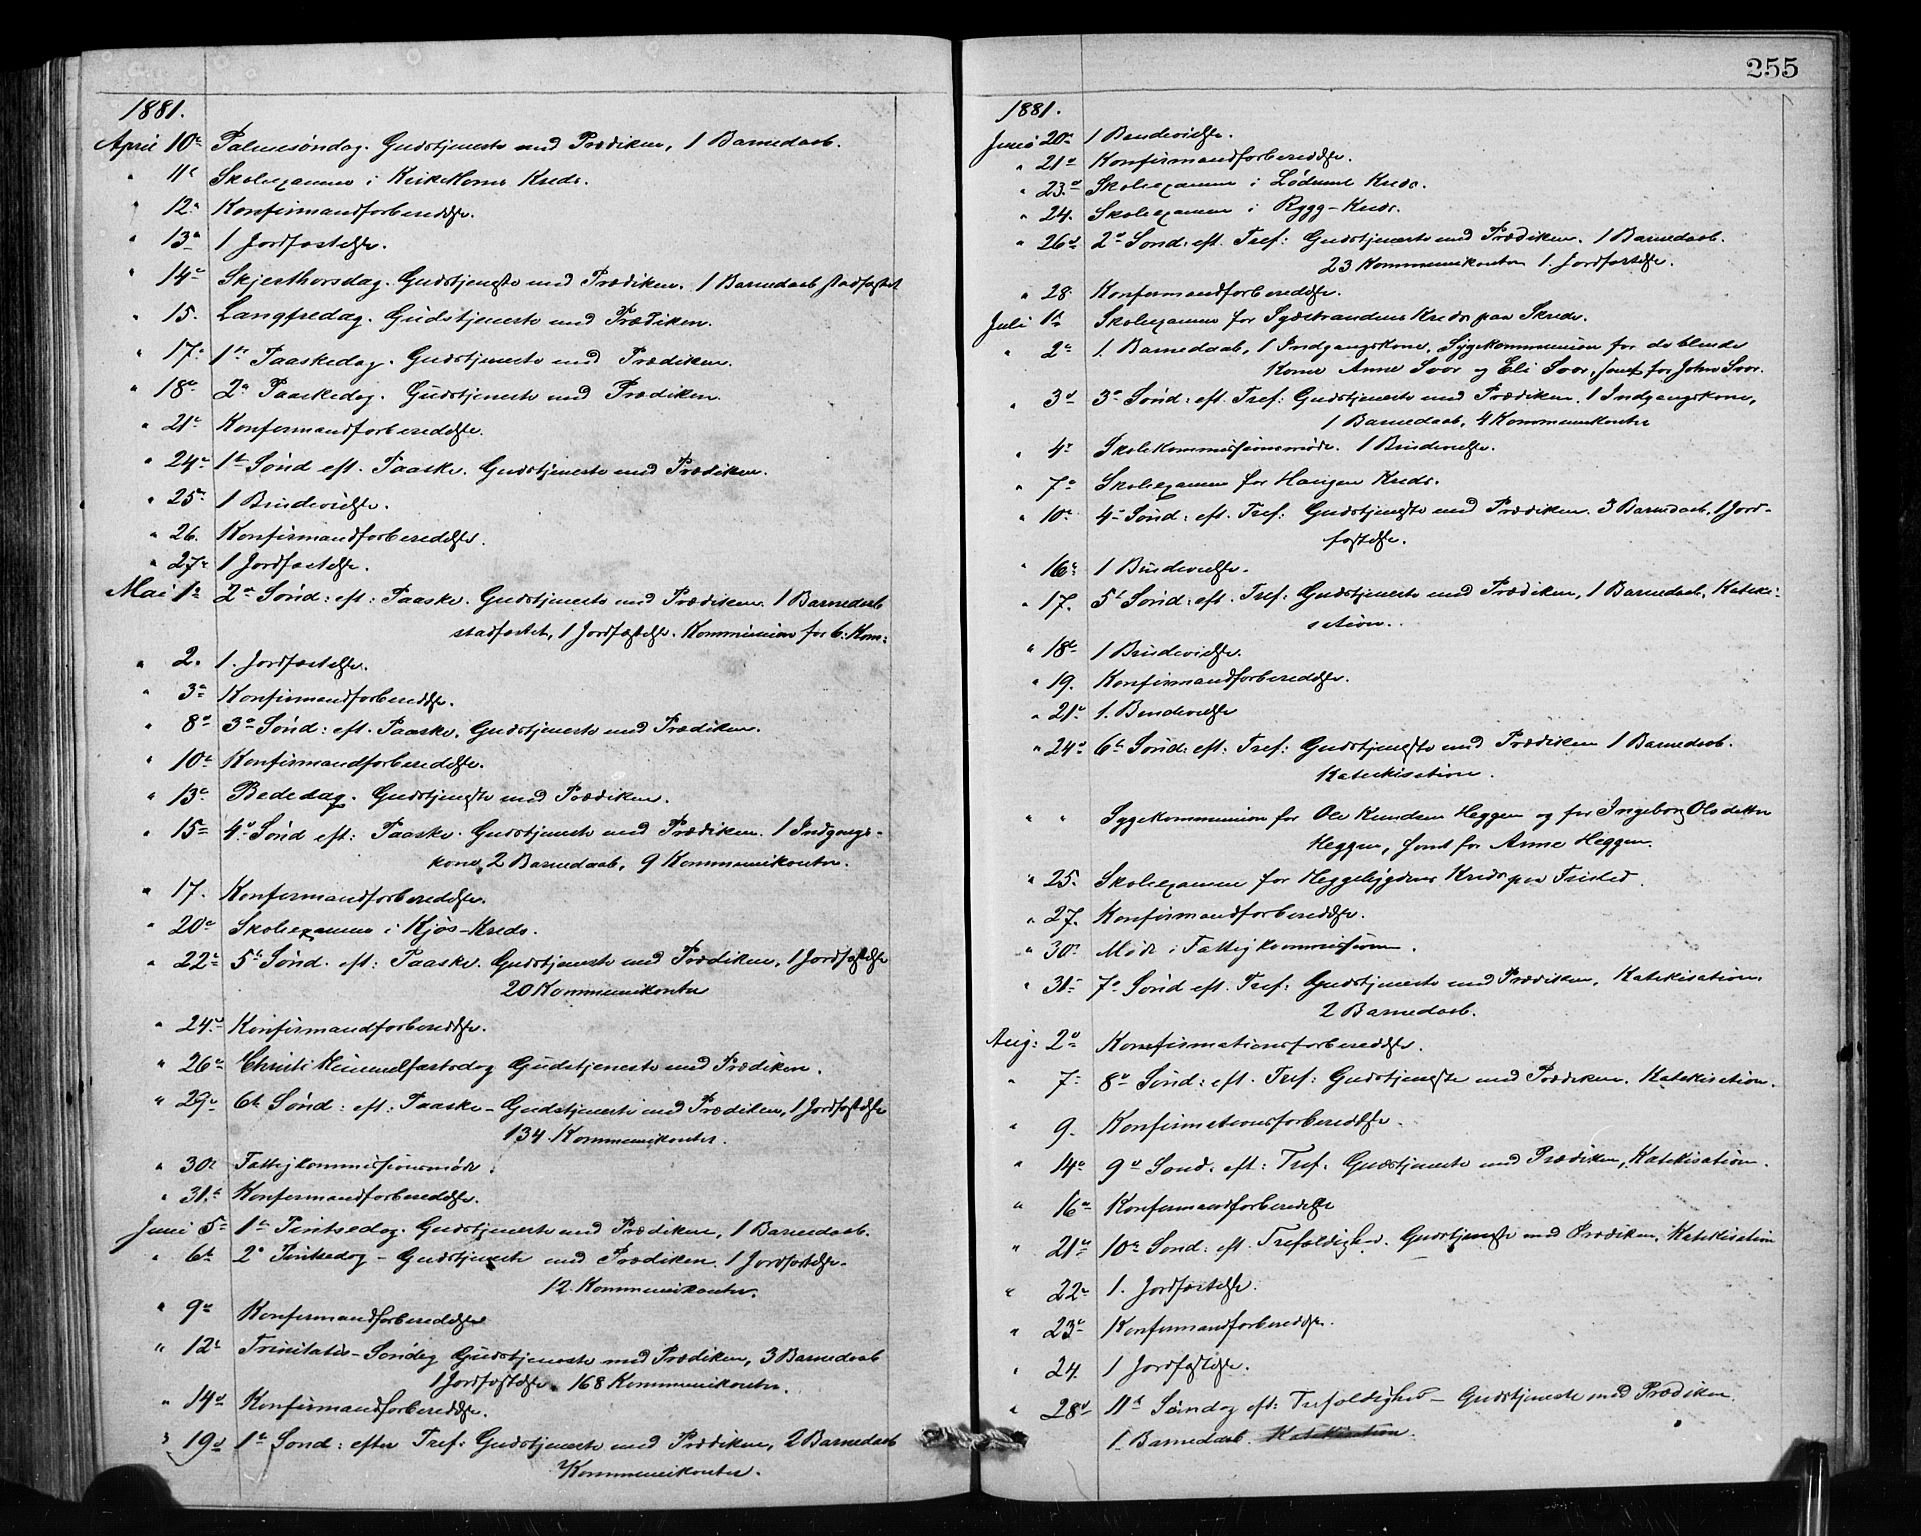 1881.
April 10de Palmesøndag. Gudstjeneste med Prædiken, 1 Barnedaab.
" 11te Skoleexamen i Kirkehorns Kreds.
" 12te Konfirmandforberedelse.
" 13de 1 Jordfæstelse.
" 14de Skjerthorsdag. Gudstjeneste med Prædiken. 1 Barnedaab stadfæstet
" 15. Langfredag. Gudstjeneste med Prædiken.
" 17de 1ste Paaskedag. Gudstjeneste med Prædiken.
" 18de 2den Paaskedag. Gudstjeneste med Prædiken.
" 21de Konfirmandforberedelse.
" 24de 1ste Sønd eft. Paaske. Gudstjeneste med Prædiken.
" 25de 1 Brudevielse.
" 26. Konfirmandforberedelse.
" 27de 1 Jordfæstelse.
Mai 1ste 2den Sønd: eft: Paaske. Gudstjeneste med Prædiken. 1 Barnedaab
stadfæstet, 1 Jordfæstelse. Kommunion for 6. Kom:
" 2. 1. Jordfæstelse.
" 3de Konfirmandforberedelse.
" 8de 3de Sønd: eft. Paaske. Gudstjeneste med Prædiken.
" 10de Konfirmandforberedelse.
" 13de Bededag. Gudstjeneste med Prædiken.
" 15de 4de Sønd eft: Paaske. Gudstjeneste med Prædiken. 1 Indgangs-
kone, 2 Barnedaab, 9 Kommunikanter.
" 17. Konfirmandforberedelse.
" 20de Skoleexamen i Kjøs-Kreds.
" 22de 5te Sønd. eft: Paaske. Gudstjeneste med Prædiken, 1 Jordfæstelse
20 Kommunikanter
" 24de Konfirmandforberedelse.
" 26de Christi Himmelfartsdag Gudstjeneste med Prædiken.
" 29de 6te Sønd: eft: Paaske - Gudstjeneste med Prædiken, 1 Jordfæstelse
134 Kommunikanter.
" 30te Fattigkommissionsmøde.
" 31te Konfirmandforberedelse.
Juni 5te 1ste Pintsedag. Gudstjeneste med Prædiken, 1 Barnedaab.
" 6te 2den Pintsedag - Gudstjeneste med Prædiken. 1 Jordfæstelse.
12. Kommunikanter.
" 9de Konfirmandforberedelse
" 12te Trinitatis-Søndag Gudstjeneste med Prædiken, 3 Barnedaab
1 Jordfæstelse. 168 Kommunikanter.
" 14de Konfirmandforberedelse.
" 19de 1ste Sønd: efter Tref: Gudstjeneste med Prædiken, 2 Barnedaab
Kommunikanter.
255
1881.
Juni 20de 1 Brudevielse.
" 21de Konfirmandforberedelse.
" 23de Skoleexamen i Lødemel Kreds.
" 24. Skoleexamen i Rygg-Kreds.
" 26de 2den Sønd: eft. Tref: Gudstjeneste med Prædiken. 1 Barnedaab.
23 Kommunikanter 1. Jordfæstelse.
" 28 Konfirmandforberedelse.
Juli 1ste Skoleexamen for Sydstrandens Kreds paa Skrede.
" 2den 1. Barnedaab, 1 Indgangskone, Sygekommunion for de blinde
Kone Anne Svor og Eli Svor, samt for John Svor.
" 3de 3de Sønd: eft. Tref: Gudstjeneste med Prædiken. 1 Indgangskone,
1 Barnedaab, 4 Kommunikanter
" 4de Skolekommissionsmøde. 1 Brudevielse.
" 7de Skoleexamen for Haugen Kreds.
" 10de 4de Sønd: eft. Tref: Gudstjeneste med Prædiken. 3 Barnedaab, 1 Jord-
fæstelse.
" 16de 1 Brudevielse.
" 17. 5te Sønd: eft. Tref: Gudstjeneste med Prædiken, 1 Barnedaab, Kateki-
sation.
" 18de 1 Brudevielse.
" 19. Konfirmandforberedelse.
" 21de 1. Brudevielse
" 24de 6te Sønd: eft: Tref: Gudstjeneste med Prædiken 1 Barnedaab.
Katekisation.
" " Sygekommunion for Ole Knudsen Heggen og for Ingeborg Olsdatter
Heggen, samt for Anne Heggen.
" 25. Skoleexamen for Heggebygdens Kreds paa
" 27. Konfirmandforberedelse.
" 30te Møde i Fattigkommissionen.
" 31te 7de Sønd eft. Tref: Gudstjeneste med Prædiken, Katekisation,
2 Barnedaab.
Aug: 2den Konfirmationsforberedelse.
" 7de 8de Sønd: eft. Tref: Gudstjeneste med Prædiken. Katekisation.
" 9. Konfirmationsforberedelse.
" 14de 9de Sønd. eft: Tref. Gudstjeneste med Prædiken, Katekisation.
" 16de Konfirmandforberedelse
" 21de 10de Sønd: eft. Trefoldighed. Gudstjeneste med Prædiken, Katekisation
" 22de 1. Jordfæstelse.
" 23de Konfirmandforberedelse.
" 24. 1 Jordfæstelse.
" 28de 11te Søndag eft: Trefoldighed - Gudstjeneste med Prædiken.
1. Barnedaab. Katekisation.